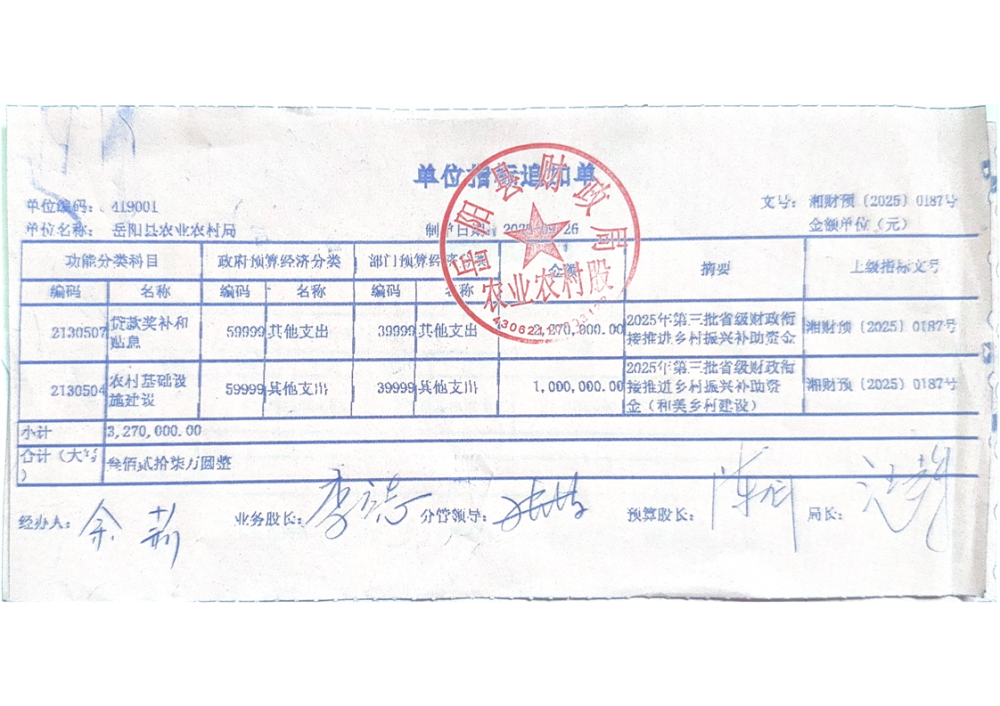 单位指标追加单
单位编码：419001
文号：湘财预〔2025〕0187号
单位名称：岳阳县农业农村局
制单日期
金额单位（元）
功能分类科目 政府预算经济分类 部门预算经济分类 金额 摘要 上级指标文号
编码 名称 编码 名称 编码 名称
2130507 贷款奖补和贴息 59999 其他支出 39999 其他支出 2,270,000.00 2025年第三批省级财政衔接推进乡村振兴补助资金 湘财预〔2025〕0187号
2130504 农村基础设施建设 59999 其他支出 39999 其他支出 1,000,000.00 2025年第三批省级财政衔接推进乡村振兴补助资金（和美乡村建设） 湘财预〔2025〕0187号
小计 3,270,000.00
合计（大写） 叁佰贰拾柒万圆整
经办人：余 业务股长：李 分管领导： 预算股长：陈 局长：
岳阳县财政局
农业农村股